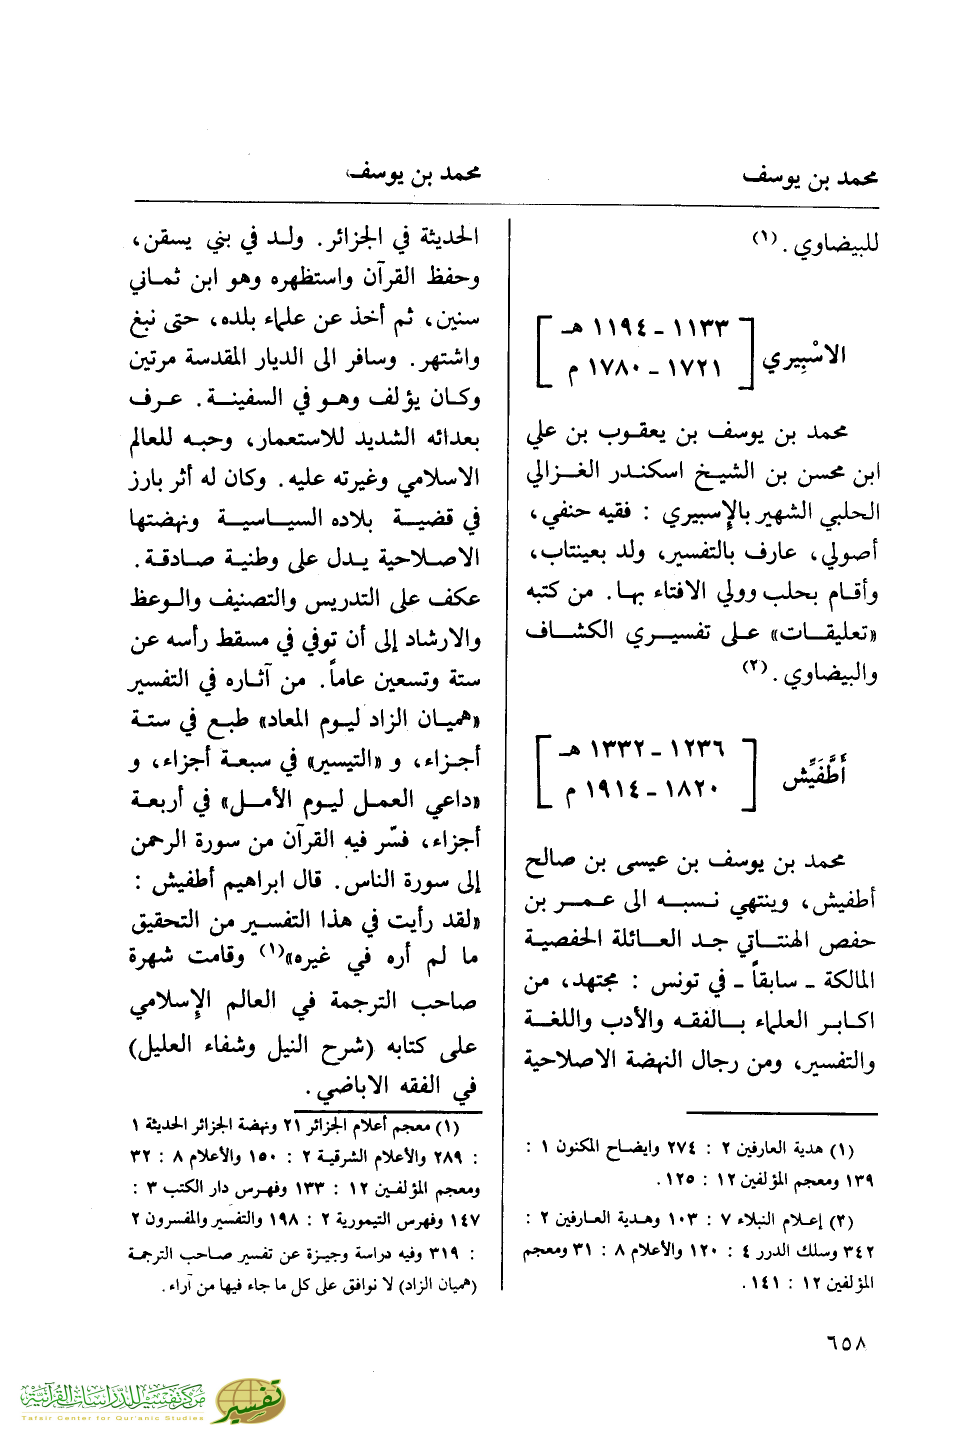 محمد بن يوسف
محمد بن يوسف
للبيضاوي . (١)
الاسْبِيري
[ ١١٣٣ ـ ١١٩٤ هـ
١٧٢١ ـ ١٧٨٠ م ]
محمد بن يوسف بن يعقوب بن علي
ابن محسن بن الشيخ اسكندر الغزالي
الحلبي الشهير بالإسبيري : فقيه حنفي ،
أصولي ، عارف بالتفسير، ولد بعينتاب،
وأقام بحلب وولي الافتاء بها. من كتبه
«تعليقات» على تفسيري الكشاف
والبيضاوي . (٢)
أَطَّفَيِّش
[ ١٢٣٦ ـ ١٣٣٢ هـ
١٨٢٠ ـ ١٩١٤ م ]
محمد بن يوسف بن عيسى بن صالح
أطفيش، وينتهي نسبه الى عمر بن
حفص الهنتاتي جد العائلة الحفصية
المالكة ـ سابقاً ـ في تونس : مجتهد، من
اكابر العلماء بالفقه والأدب واللغة
والتفسير، ومن رجال النهضة الاصلاحية
(١) هدية العارفين ٢ : ٢٧٤ وايضاح المكنون ١ :
١٣٩ ومعجم المؤلفين ١٢ : ١٢٥ .
(٢) إعلام النبلاء ٧ : ١٠٣ وهدية العارفين ٢ :
٣٤٢ وسلك الدرر ٤ : ١٢٠ والأعلام ٨ : ٣١ ومعجم
المؤلفين ١٢ : ١٤١ .
الحديثة في الجزائر. ولد في بني يسقن ،
وحفظ القرآن واستظهره وهو ابن ثماني
سنين، ثم أخذ عن علماء بلده، حتى نبغ
واشتهر. وسافر الى الديار المقدسة مرتين
وكان يؤلف وهو في السفينة . عرف
بعدائه الشديد للاستعمار، وحبه للعالم
الاسلامي وغيرته عليه. وكان له أثر بارز
في قضية بلاده السياسية ونهضتها
الاصلاحية يدل على وطنية صادقة .
عكف على التدريس والتصنيف والوعظ
والارشاد إلى أن توفي في مسقط رأسه عن
ستة وتسعين عاماً. من آثاره في التفسير
«هميان الزاد ليوم المعاد» طبع في ستة
أجزاء، و «التيسير» في سبعة أجزاء، و
«داعي العمل ليوم الأمل» في أربعة
أجزاء، فسّر فيه القرآن من سورة الرحمن
إلى سورة الناس. قال ابراهيم أطفيش :
«لقد رأيت في هذا التفسير من التحقيق
ما لم أره في غيره»(١) وقامت شهرة
صاحب الترجمة في العالم الإسلامي
على كتابه (شرح النيل وشفاء العليل)
في الفقه الاباضي .
(١) معجم أعلام الجزائر ٢١ ونهضة الجزائر الحديثة ١
: ٢٨٩ والأعلام الشرقية ٢ : ١٥٠ والأعلام ٨ : ٣٢
ومعجم المؤلفين ١٢ : ١٣٣ وفهرس دار الكتب ٣ :
١٤٧ وفهرس التيمورية ٢ : ١٩٨ والتفسير والمفسرون ٢
: ٣١٩ وفيه دراسة وجيزة عن تفسير صاحب الترجمة
(هميان الزاد) لا نوافق على كل ما جاء فيها من آراء .
٦٥٨
مركز تفسير للدراسات القرآنية
Tafsir Center for Qur'anic Studies
تفسير